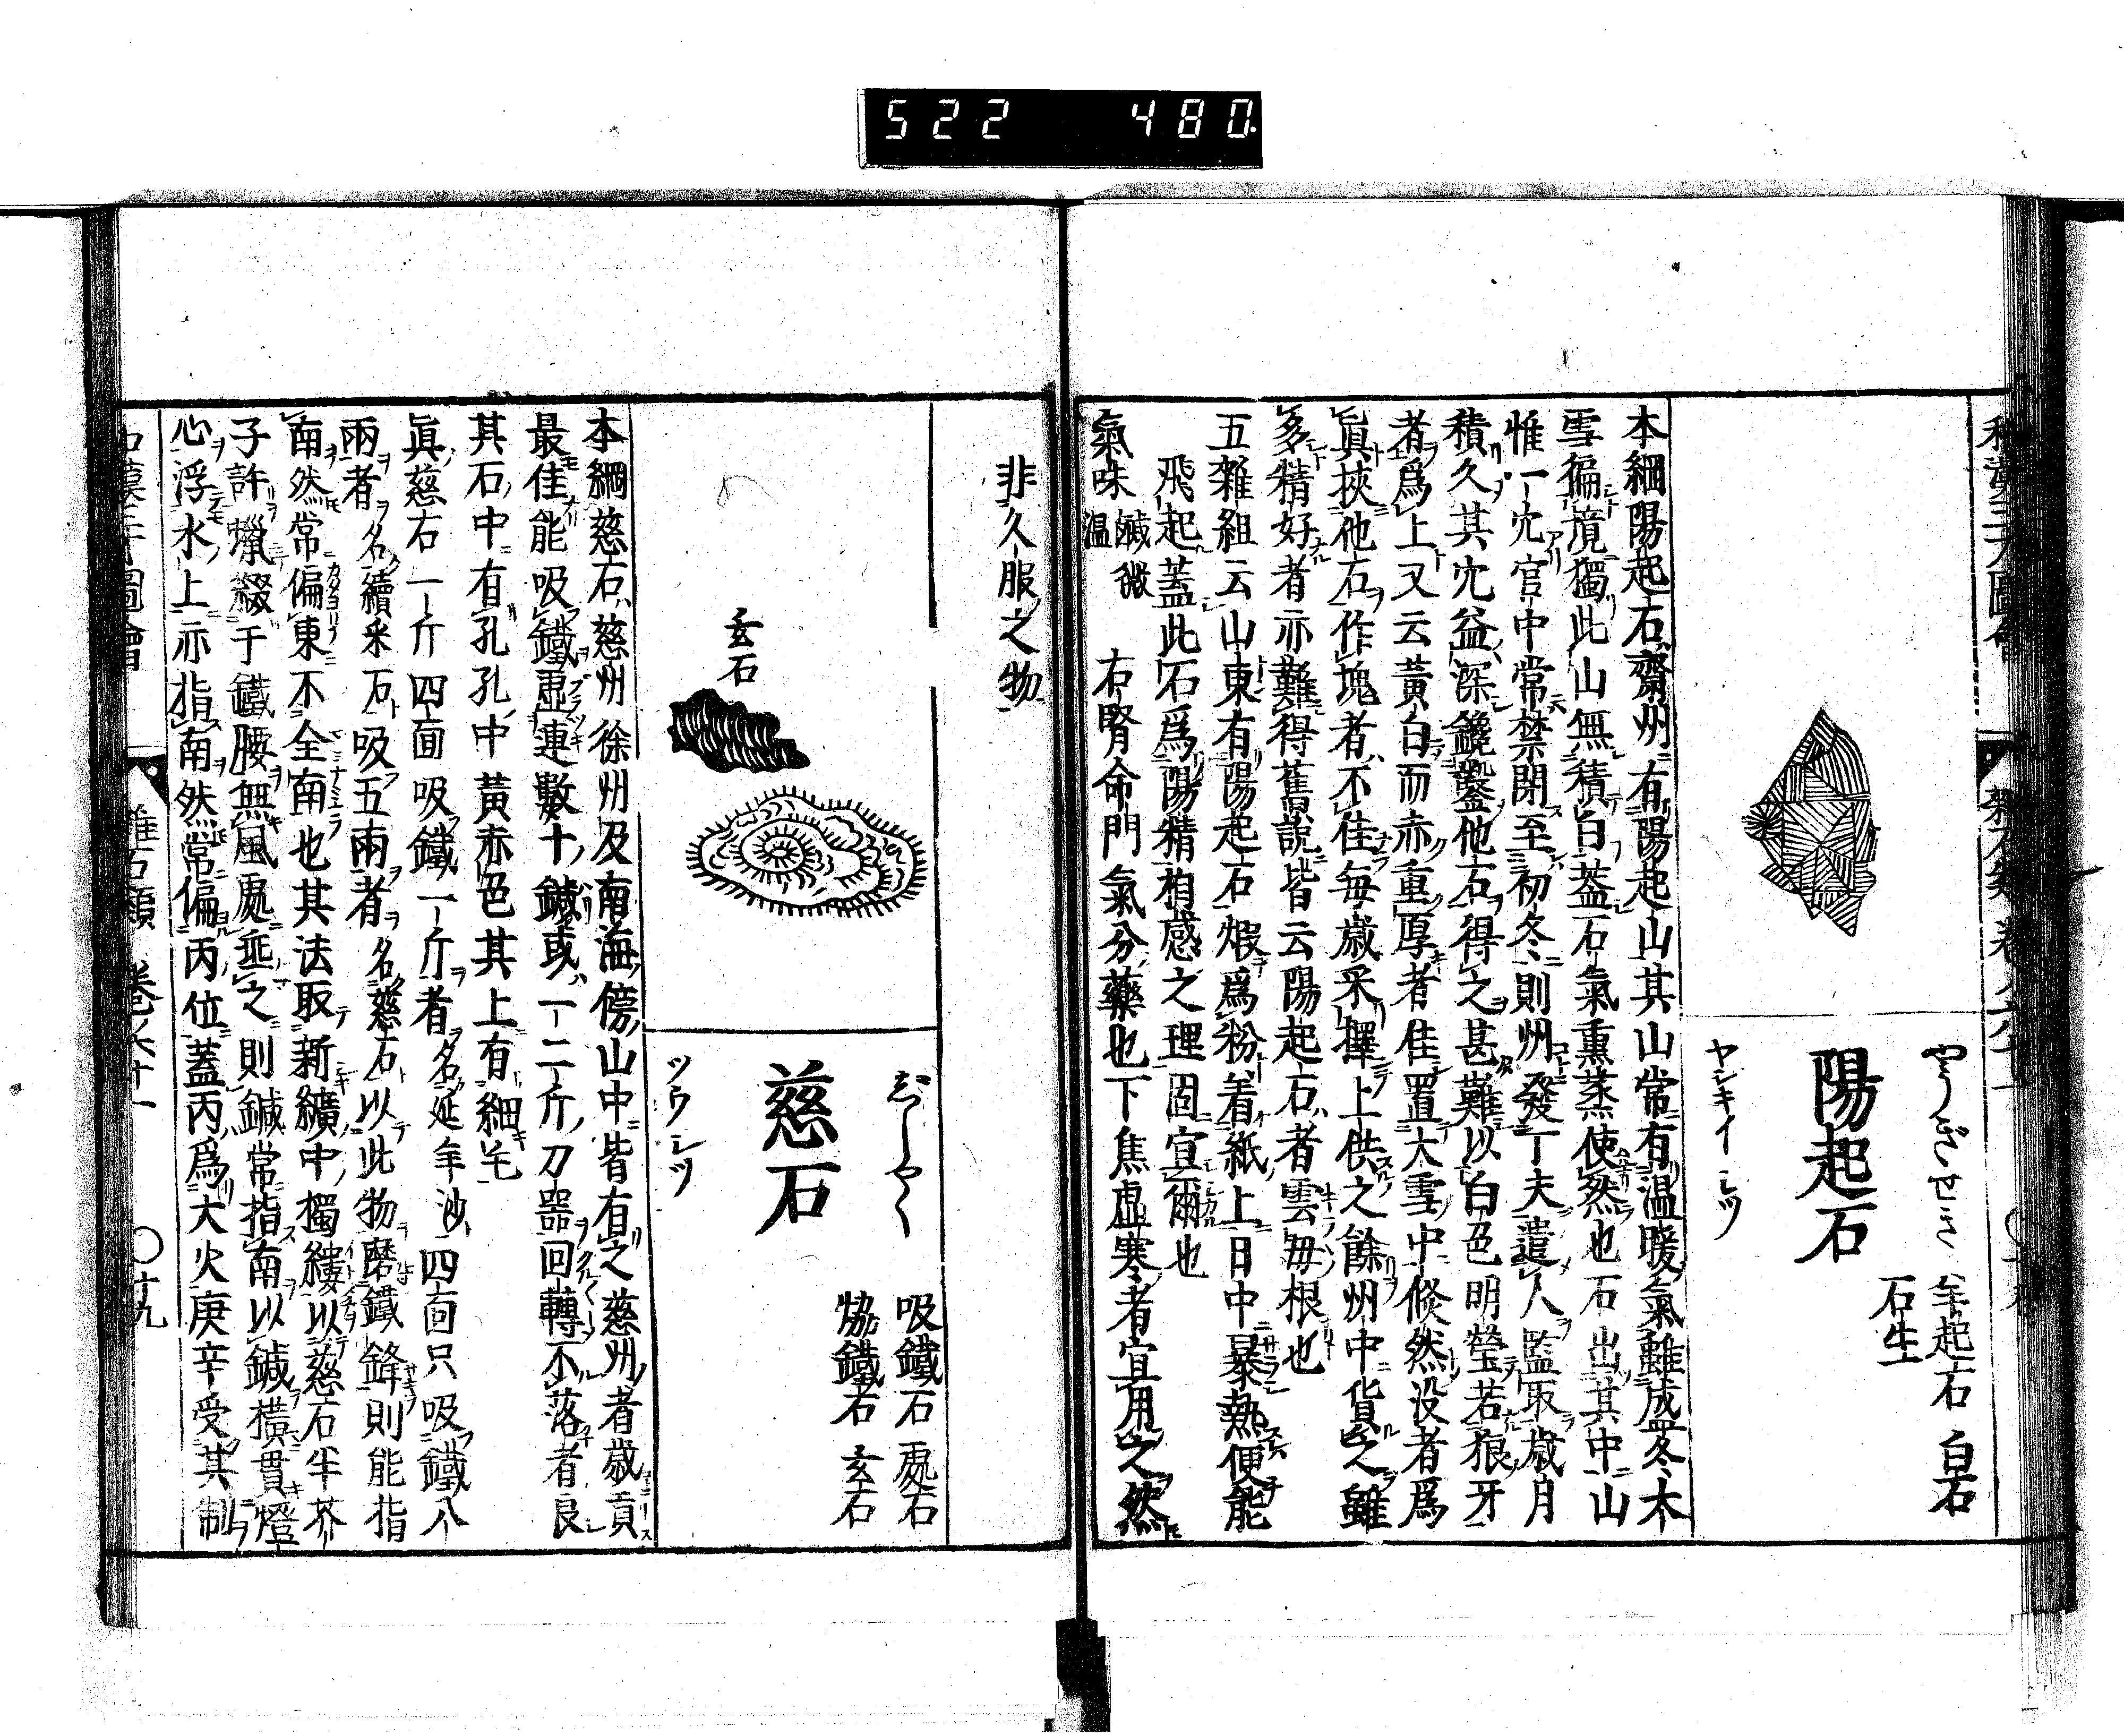 522 480
陽起石
やうきせき
羊起石 白石
石生
ヤンキイシツ
本綱陽起石齋州有陽起山其山常有温暖氣雖盛冬大
雪徧境獨此山無積白葢石氣熏蒸使然也石出其中山
惟一穴官中常禁閉至初冬則州發丁夫遣人監取歳月
積久其穴益深鑱鑿他石得之甚難以白色明瑩若狼牙
者爲上又云黃白而赤重厚者佳置大雪中倐然没者爲
眞挾他石作塊者不佳每歳采擇上供之餘州中貨之雖
多精好者亦難得舊說皆云陽起石者雲毋根也
五雜組云山東有陽起石煆爲粉着紙上日中暴熱便能
飛起葢此石爲陽精相感之理固宜爾也
氣味 鹹微温 右腎命門氣分藥也下焦虛寒者宜用之然
非久服之物
玄石
慈石
じしやく
吸鐵石 處石
熁鐵石 玄石
ツウシツ
本綱慈石慈州徐州及南海傍山中皆有之慈州者歳貢
最佳能吸鐵虛連數十鍼或一二斤刀器回轉不落者良
其石中有孔孔中黃赤色其上有細毛
眞慈石一斤四面吸鐵一斤者名延年沙四面只吸鐵八
兩者名續采石吸五兩者名慈石以此物磨鐵鋒則能指
南然常偏東不全南也其法取新纊中獨縷以慈石半芥
子許蠟綴于鐵腰無風處垂之則鍼常指南以鍼横貫燈
心浮水上亦指南然常偏丙位葢丙爲大火庚辛受其制